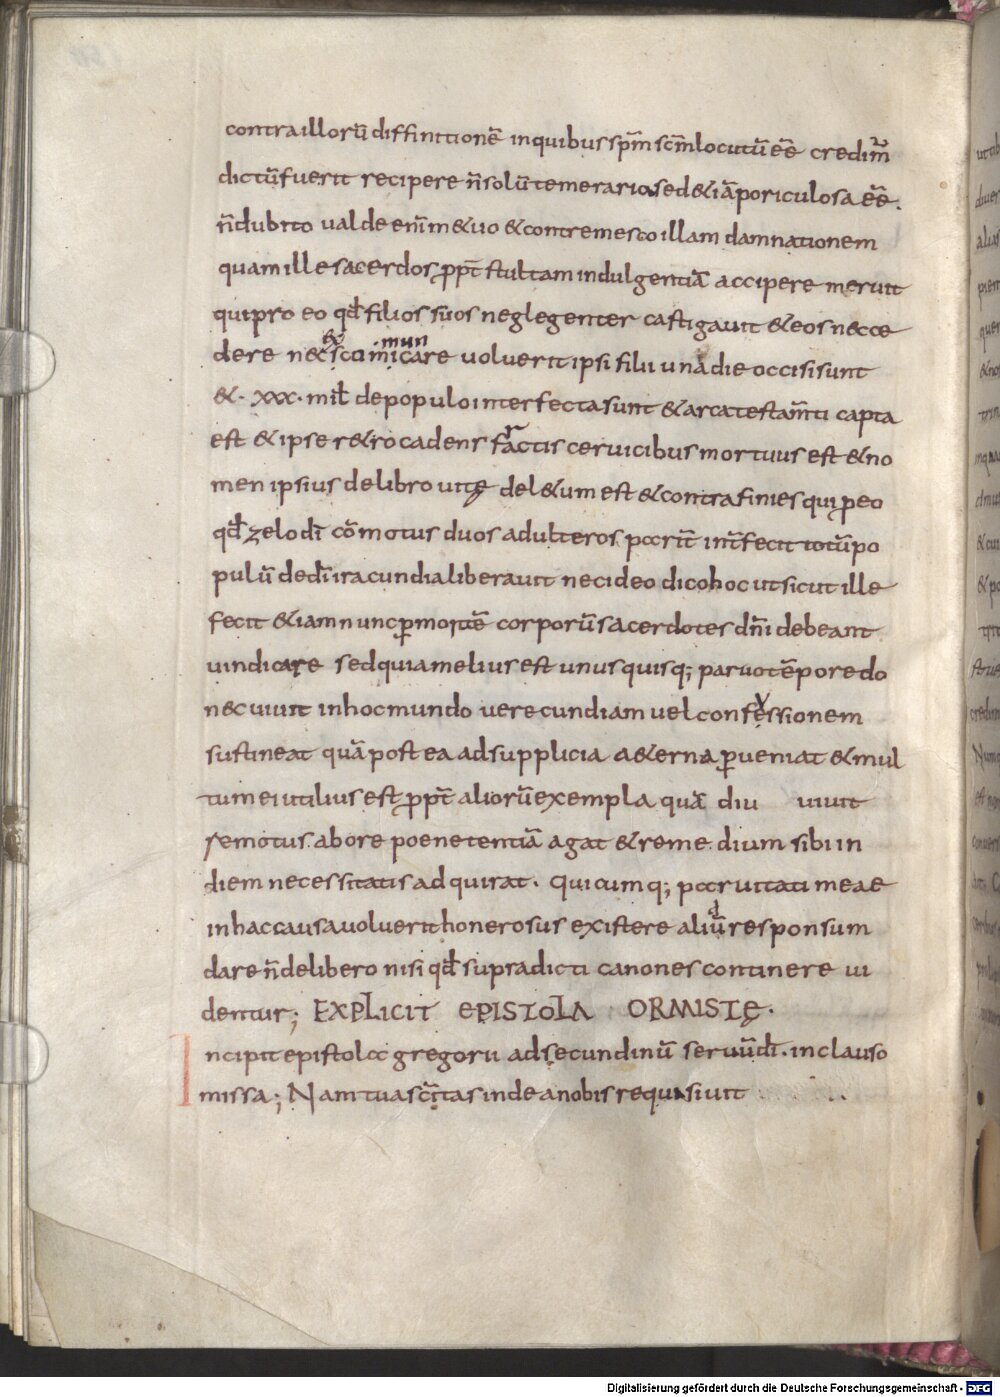 contra illorū diffinitionē in quibus spm̄ scm̄ locutū eē credim̄
dictū fuerit recipere n̄ solū temerario sed & iā periculosa eē.
n̄ dubito valde eni̅m &uo & contremesco illam damnationem
quam ille sacerdos ꝓpt̄ stultam indulgentiā accipere meruit
qui pro eo qđ filios suos neglegenter castigauit & eos necce
dere nec excomicare uoluerit ipsi filii una die occisi sunt
mun
&. xxx. mil̄ de populo interfecta sunt & arca testam̄ti capta
est & ipse r&ro cadens fractis ceruicibus mortuus est & no
men ipsius de libro uitę del&um est & contra finies qui p eo
qđ zelo dī cōmotus duos adulteros pariт̄ int̄fecit totū po
pulū de dei iracundia liberauit nec ideo dico hoc ut sicut ille
fecit & iam nunc ꝑ mortē corporū sacerdotes dn̄i debeant
uindicare sed quia melius est unusquisq; paruo tēpore do
nec uiuit in hoc mundo uerecundiam uel confessionem
sustineat quā postea ad supplicia a&erna ꝑueniat & mul
tum ei utilius est ꝓpt̄ aliorū exempla quā diu uiuit
semotus abore poenetentiā agat & remedium sibi in
diem necessitatis adquirat. Quicumq; paruitati meae
in hac causa uoluerit honerosus existere aliud responsum
dare n̄ delibero nisi qđ supradicti canones continere ui
dentur; EXPLICIT EPISTOLA ORMISTĘ.
Incipit epistola gregorii ad secundinū seruū dī. inclauso
missa; Nam tua sc̄itas inde a nobis requisiuit